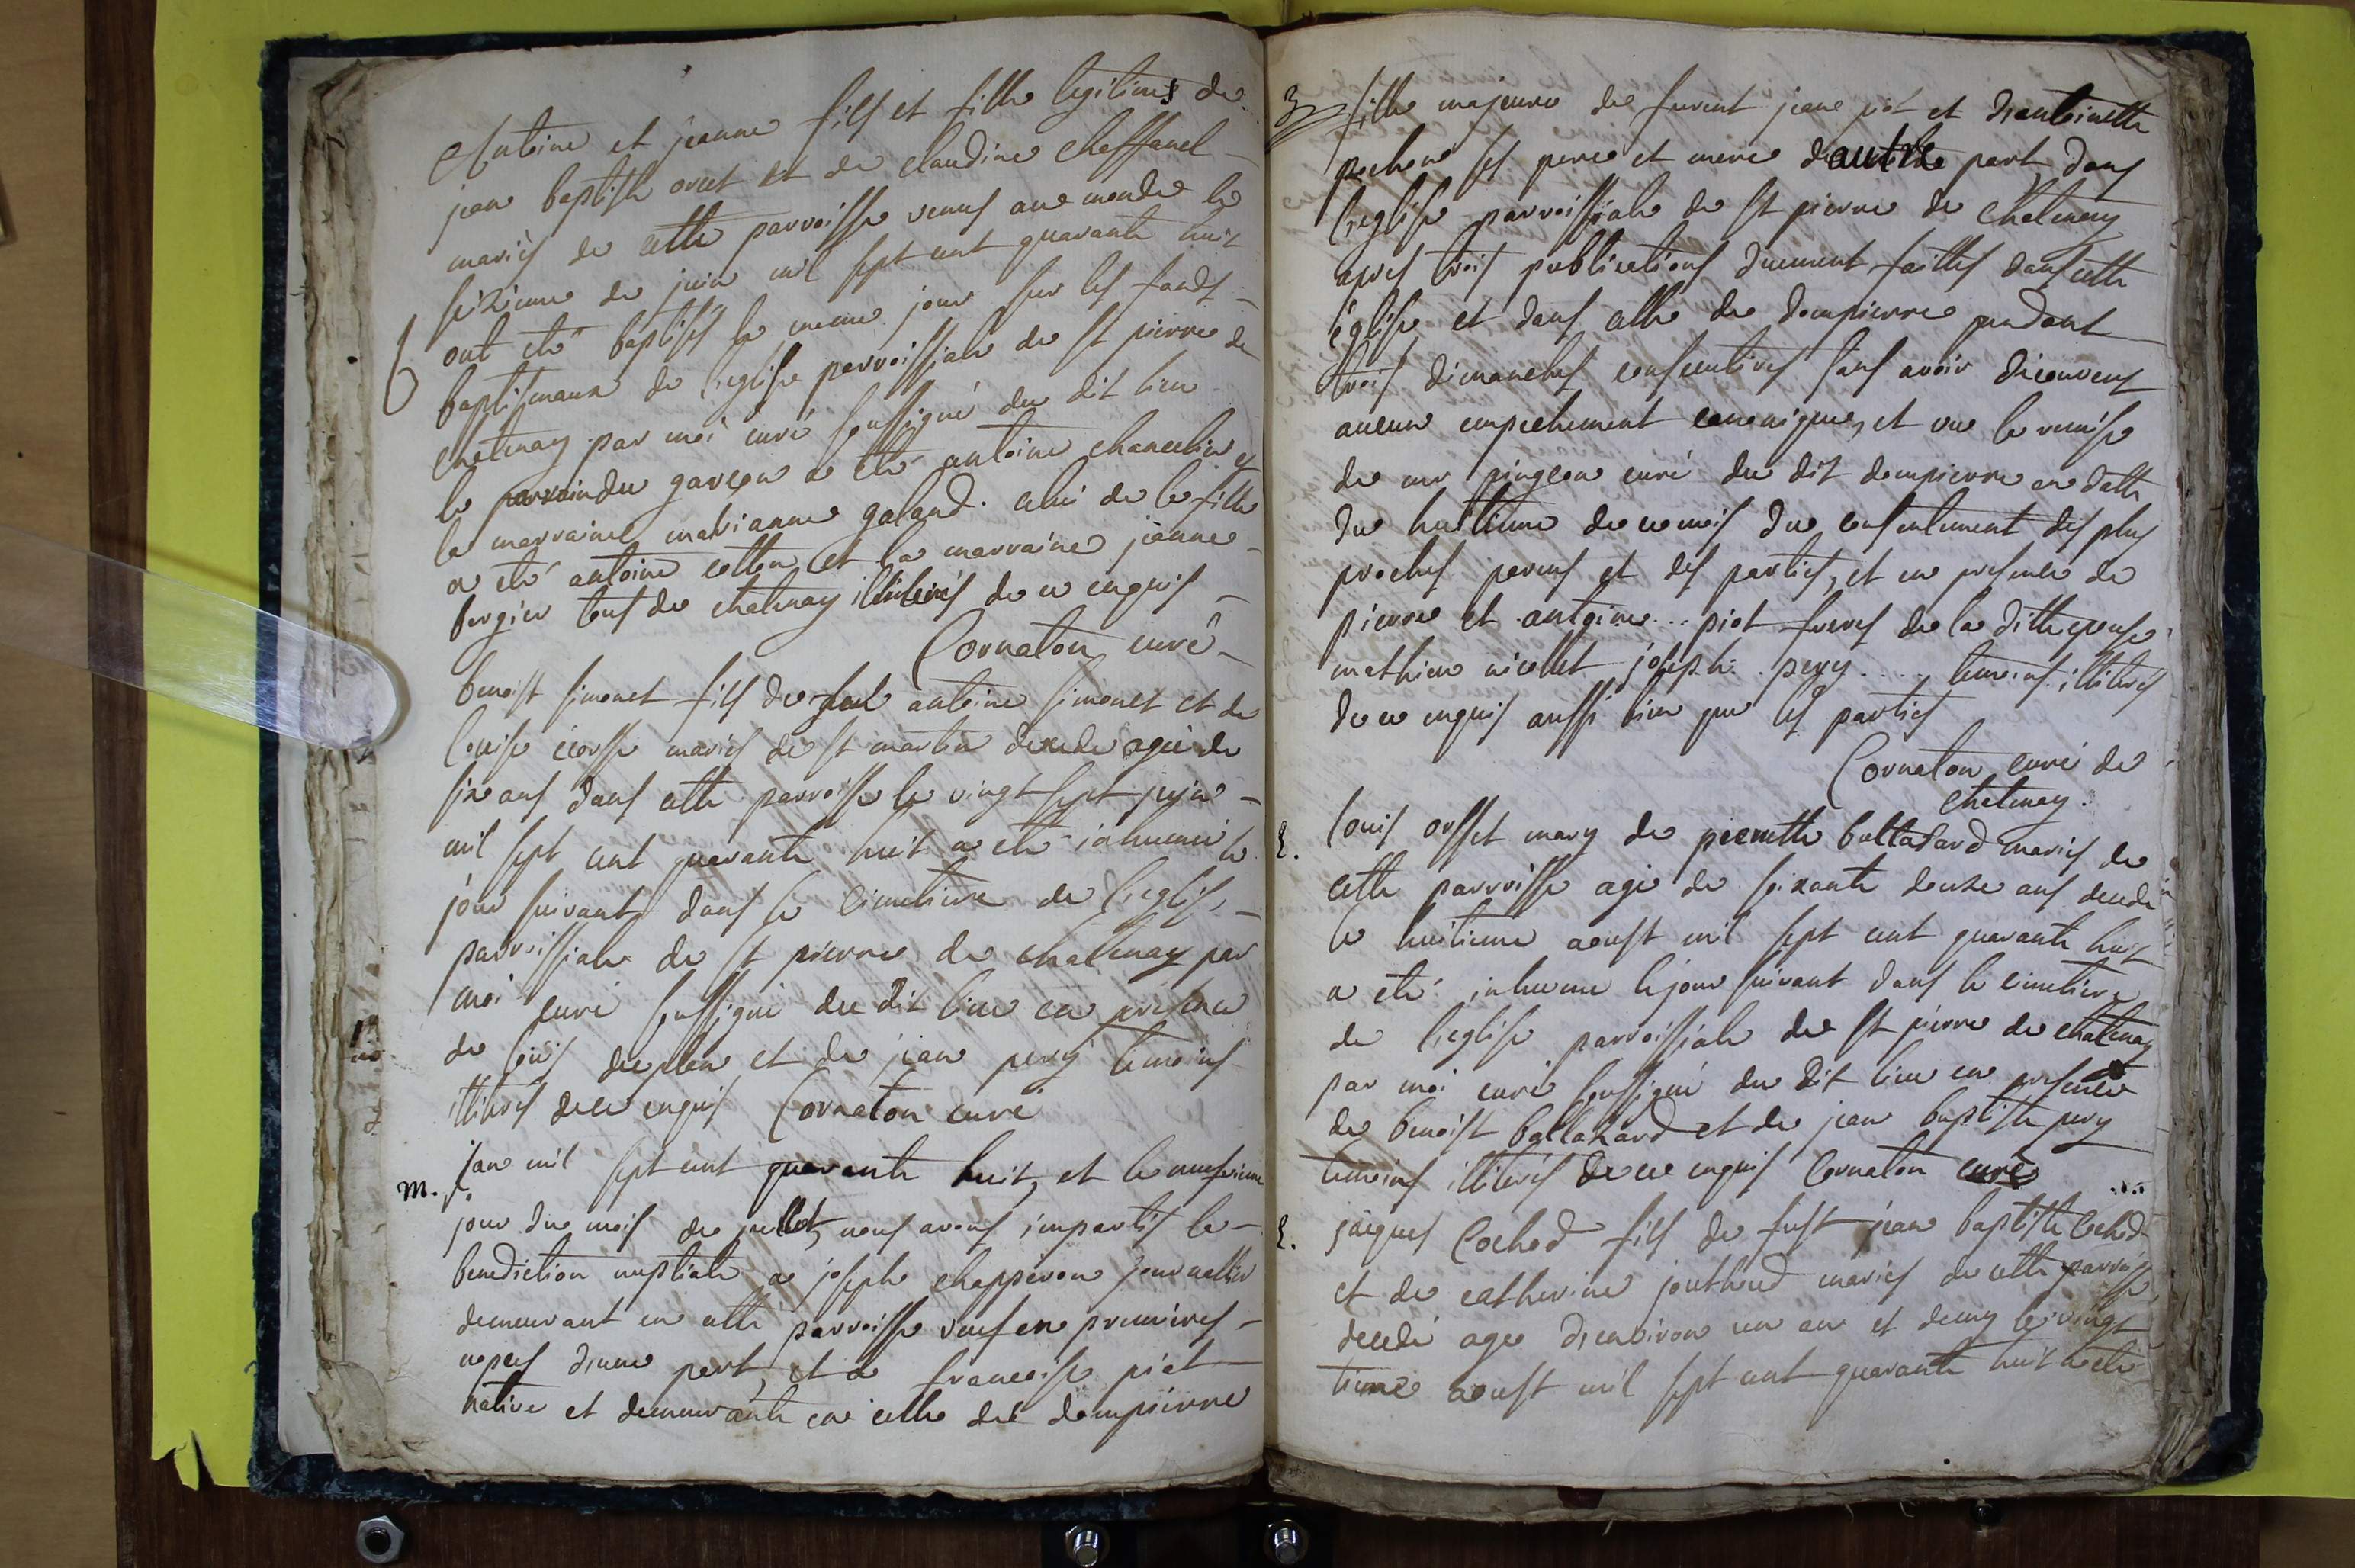 Antoine et jeanne fils et fille legitimes de
jean baptiste orset et de claudine Chaffanel
mariés de cette parroisse venus au monde le
seizieme de juin mil sept cent quarante huit
ont eté baptisés le meme jour sur les fonds
baptismaux de l'eglise parroissiale de st pierre de
chatenay par moi curé soussigné du dit lieu
le parrain du garçon a eté antoine chancelin et
la marraine marianne galand. celui de la fille
a eté antoine cotton et la marraine jeanne
bergier tous de chatenay illiterés de ce enquis
Cornaton curé
benoist simonet fils de feu antoine simonet et de
louise ecosse mariés de st martin decedé agé de
six ans dans cette parroisse le vingt sept juin
mil sept cent quarante huit a eté inhumé le
jour suivant dans le cimetiere de l'eglise
parroissiale de st pierre de chatenay par
moi curé soussigné du dit lieu en presence
de loüis duplan et de jean pery temoins
illiterés de ce enquis Cornaton curé
m. l'an mil sept cent quarante huit, et le neufvieme
jour du mois de juillet, nous avons imparti la
benediction nuptiale a joseph chapperon journallier
demeurant en cette parroisse veuf en premieres
nopces d'une part, et a francoise piot
native et demeurante en celle de dompierre
fille majeure de furent jean piot et d'antoinette
pochon ses pere et mere d'autre part, dans
l'eglise parroissiale de st pierre de chatenay
apres trois publications duement faittes dans cette
eglise et dans celle de dompierre pendant
trois dimanches consecutives sans avoir decouvert
aucun empechement canonique, et vue la remise
de mr pingeon curé du dit dompierre en datte
du huitieme de ce mois du consentement des plus
proches parens et des parties, et en presence de
pierre et antoine ... piot freres de la ditte epouse
mathieu nicollet joseph .. pery .... temoins illiterés
de ce enquis aussi bien que les parties
Cornaton curé de
chatenay.
E. louis orsset mary de pierrette ballasard mariés de
cette parroisse agé de soixante douze ans decedé
le huitieme aoust mil sept cent quarante huit
a eté inhumé le jour suivant dans le cimetiere
de l'eglise parroissiale de st pierre de chatenay
par moi curé soussigné du dit lieu en presence
de benoist ballazard et de jean baptiste pery
temoins illiterés de ce enquis Cornaton curé
E. jacques Cochod fils de fust jean baptiste Cochod
et de catherine jouthoud mariés de cette parroisse
decedé agé d'environ un an et demy le vingt
tieme aoust mil sept cent quarante huit a eté